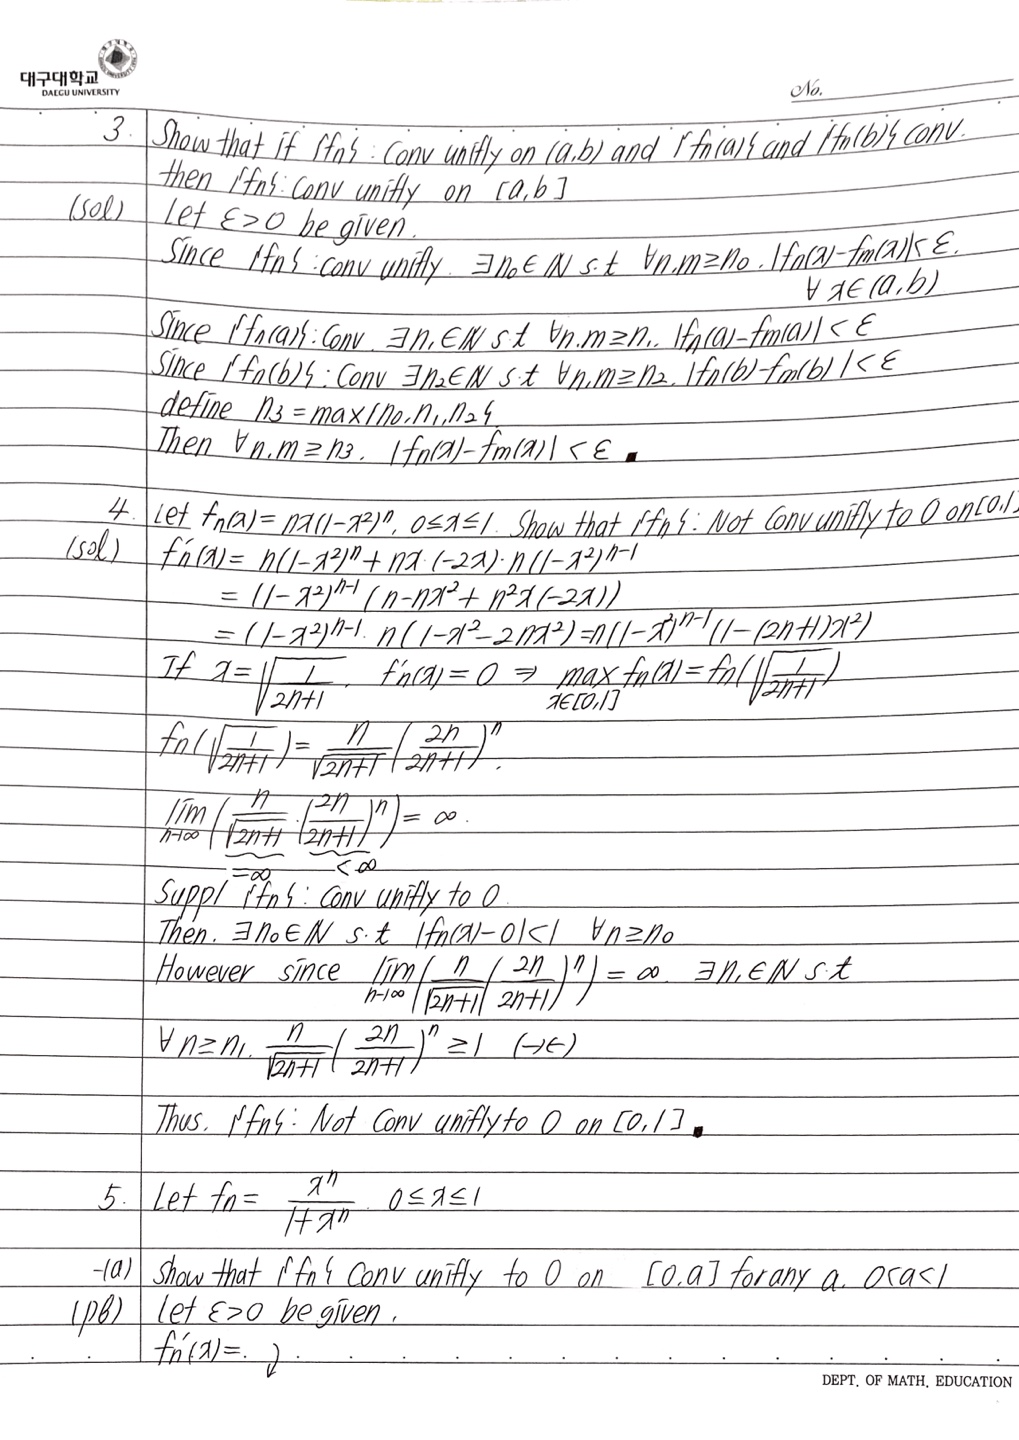 대구대학교
DAEGU UNIVERSITY
No.
3. Show that if {fn} : Conv unifly on (a,b) and {fn(a)} and {fn(b)} conv.
then {fn} : Conv unifly on [a,b]
(sol) Let ε>0 be given.
Since {fn} : conv unifly. ∃n₀∈ℕ s.t ∀n,m≥n₀. |fn(x)-fm(x)|<ε.
∀x∈(a,b)
Since {fn(a)} : Conv. ∃n₁∈ℕ s.t ∀n,m≥n₁. |fn(a)-fm(a)|<ε
Since {fn(b)} : Conv ∃n₂∈ℕ s.t ∀n,m≥n₂. |fn(b)-fm(b)|<ε
define n₃=max{n₀,n₁,n₂}
Then ∀n,m≥n₃. |fn(x)-fm(x)|<ε ■
4. Let fn(x)=nx(1-x²)ⁿ, 0≤x≤1. Show that {fn} : Not Conv unifly to 0 on [0,1]
(sol) fn'(x)=n(1-x²)ⁿ+nx·(-2x)·n(1-x²)ⁿ⁻¹
=(1-x²)ⁿ⁻¹(n-nx²+n²x(-2x))
=(1-x²)ⁿ⁻¹·n(1-x²-2nx²)=n(1-x²)ⁿ⁻¹(1-(2n+1)x²)
If x=√(1/(2n+1)). fn'(x)=0 ⇒ max x∈[0,1] fn(x)=fn(√(1/(2n+1)))
fn(√(1/(2n+1)))=n/√(2n+1) (2n/(2n+1))ⁿ.
lim n→∞ (n/√(2n+1)·(2n/(2n+1))ⁿ)=∞.
=∞ <∞
Supp/ {fn} : Conv unifly to 0.
Then. ∃n₀∈ℕ s.t |fn(x)-0|<1 ∀n≥n₀
However since lim n→∞ (n/√(2n+1) (2n/(2n+1))ⁿ)=∞. ∃n₁∈ℕ s.t
∀n≥n₁. n/√(2n+1) (2n/(2n+1))ⁿ≥1 (→←)
Thus. {fn} : Not Conv unifly to 0 on [0,1]. ■
5. Let fn= xⁿ/(1+xⁿ) 0≤x≤1
-(a) Show that {fn} Conv unifly to 0 on [0,a] for any a. 0<a<1
(pf) Let ε>0 be given.
fn'(x)=.
DEPT. OF MATH. EDUCATION